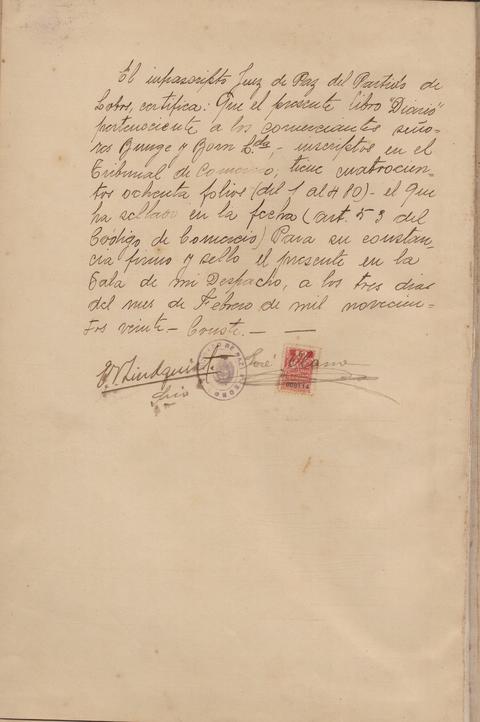 El infrascripto Juez de Paz del Partido de
Lobos, certifica: Que el presente libro "Diario"
perteneciente a los comerciantes seño-
res Bunge y Born Lda,- inscriptos en el
Tribunal de Comercio, tiene cuatrocien-
tos ochenta folios (del 1 al 480)- el que
ha sellado en la fecha (art. 53 del
Código de Comercio) Para su constan-
cia firmo y sello el presente en la
Sala de mi Despacho, a los tres dias
del mes de Febrero de mil novecien-
tos veinte- Conste.- —
José